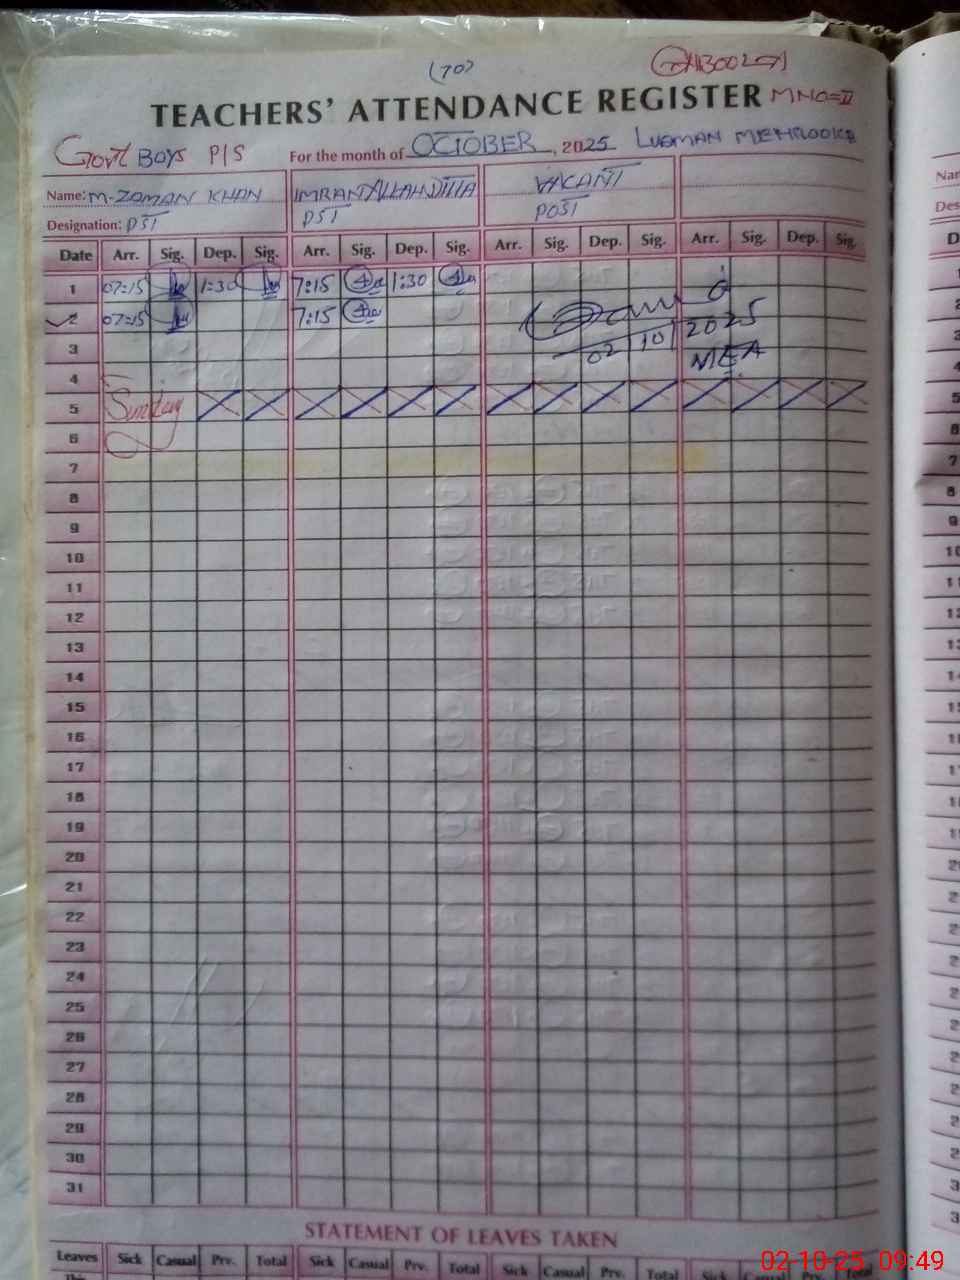 (70)
TEACHERS' ATTENDANCE REGISTER MNO=II
Govt BOYS P/S For the month of OCTOBER, 2025 LUQMAN
Name: M-ZAMAN KHAN IMRAN ALLAH DITTA VACANT
Designation: PST PST POST
Date Arr. Sig. Dep. Sig. Arr. Sig. Dep. Sig. Arr. Sig. Dep. Sig. Arr. Sig. Dep. Sig.
1 07:15 1:30 7:15 1:30
2 07:15 7:15
02/10/2025
3
MEA
4
5 Sunday
6
7
8
9
10
11
12
13
14
15
16
17
18
19
20
21
22
23
24
25
26
27
28
29
30
31
STATEMENT OF LEAVES TAKEN
Leaves Sick Casual Prv. Total Sick Casual Prv. Total Sick Casual Prv. Total Sick Casual
This
02-10-25 09:49